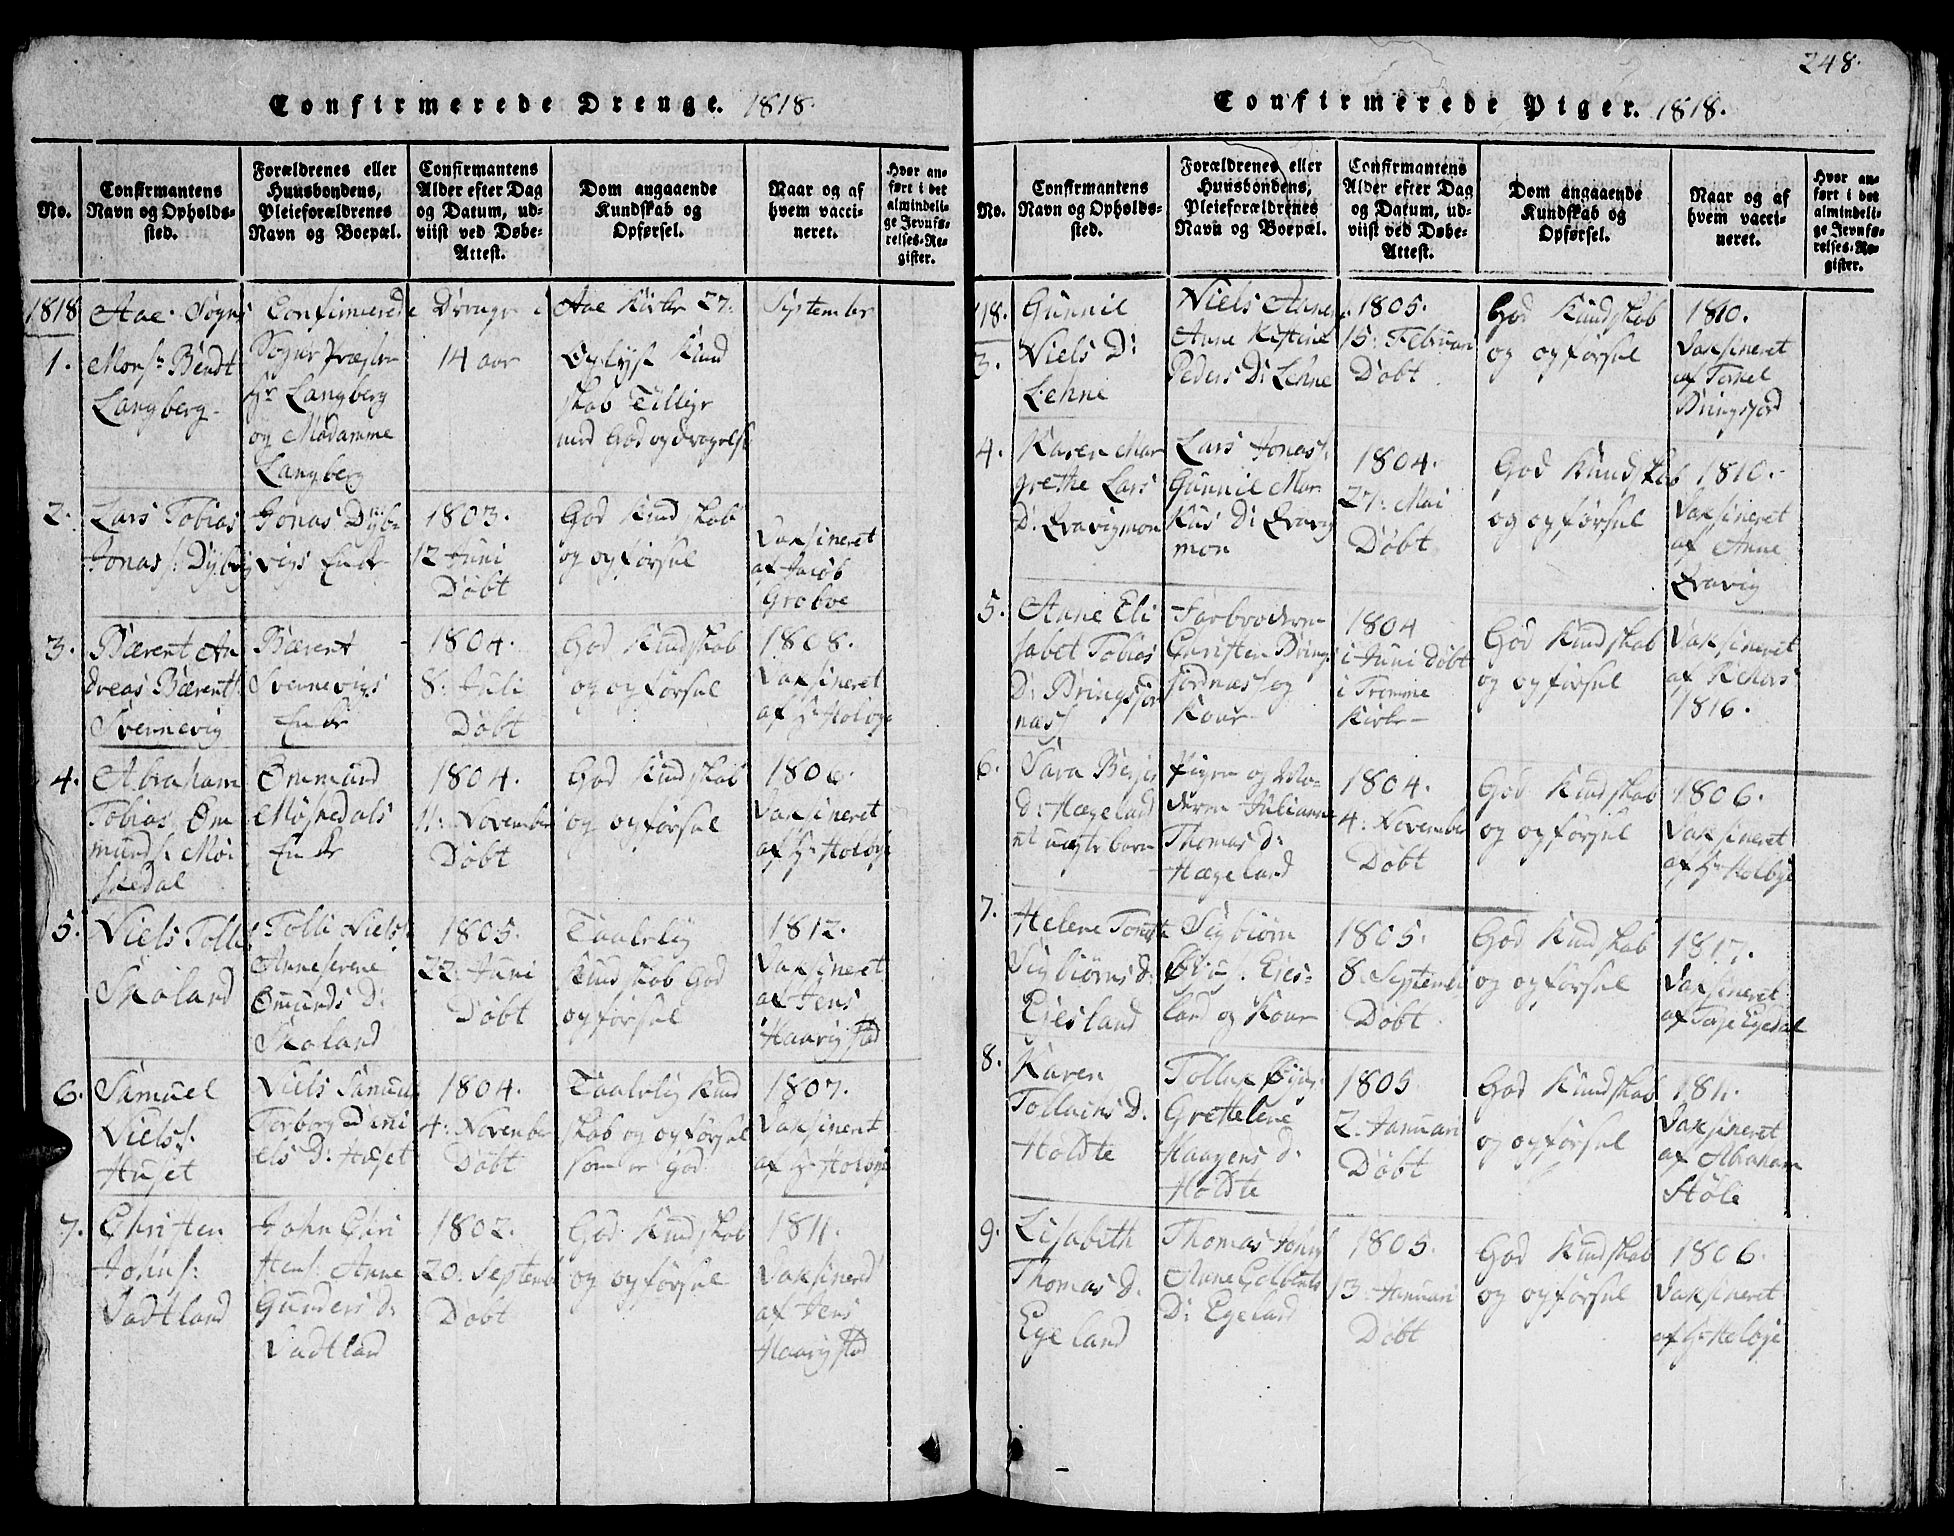 Confirmerede Drenge. 1818.
No.
Confirmantens
Navn og Opholds-
sted.
Forældrenes eller
Huusbondens,
Pleieforældrenes
Navn og Boepæl.
Confirmantens
Alder efter Dag
og Datum, ud-
viist ved Døbe-
Attest.
Dom angaaende
Kundskab og
Opførsel.
Naar og af
hvem vacci-
neret.
Hvor an-
ført i det
almindeli-
ge Jevnfø-
relses-Re-
gister.
1818 Aae Sogns Confirmerede Drenge i Aae Kirke 27: September
1.
Mons:r Bendt
Langberg.
Sogne Præsten
Hr Langberg
og Madamme
Langberg
14 aar
Oplyst Kund
skab Tillige
med God opdragelse
2.
Lars Tobias
Jonas: Dybvig
Jonas Dyb-
vigs
1803.
12 Juni
Døbt
God Kundskab
og opførsel
Vaksineret
af Jacob
Grobve
3.
Bærent An
dreas Bærents
Svennevig
Bærent
Svennevigs
1804.
8: Juli
Døbt
God Kundskab
og opførsel
1808.
Vaksineret
af Hr Holbye
4.
Abraham
Tobias Øm
munds: Mø
skedal
Ømmund
Møskedals
1804.
11: November
Døbt
God Kundskab
og opførsel
1806.
Vaksineret
af Hr Holbye
5.
Niels Tollis
Skoland
Tolli Niels:
Anneserene
Ømunds D:
Skoland
1805.
22: Juni
Døbt
Taalelig
Kundskab God
opførsel
1812.
Vaksineret
af Jens
Haarigstad
6.
Samuel
Niels:
Huset
Niels Samuels
Torborg Dani
els D: Huset
1804.
4: November
Døbt
Taalelig Kund
skab og opførsel
som er God
1807.
Vaksineret
af Hr Holbye
7.
Christen
Johns:
Vadtland
John Chri
stens: Anne
Gunders D:
Vadtland
1802.
20: September
Døbt
God Kundskab
og opførsel
1811.
Vaksinered
af Jens
Haarigstad
248.
Confirmerede Piger. 1818.
No.
Confirmantens
Navn og Opholds-
sted.
Forældrenes eller
Huusbondens,
Pleieforældrenes
Navn og Boepæl.
Confirmantens
Alder efter Dag
og Datum, ud-
viist ved Døbe-
Attest.
Dom angaaende
Kundskab og
Opførsel.
Naar og af
hvem vacci-
neret.
Hvor an-
ført i det
almindeli-
ge Jevnfø-
relses-Re-
gister.
118.
3.
Gunnil
Niels D:
Lehne
Niels
Anne Kistine
Peders D: Lehne
1805.
15: Februari
Døbt
God Kundskab
og opførsel
1810.
Vaksineret
af Tornel
Bringsjord
4.
Karen Mar
grethe Lars
D: Qvavigmon
Lars Jonas:
Gunnil Mar
kus D: Qvavig
mon
1804.
27: Mai
Døbt
God Kundskab
og opførsel
1810.
Vaksineret
af Anne
Qvavig
5.
Anne Eli
sabet Tobias
D: Bringsjor
næss
Farbroderen
Christen Brings
jordnæs og
Kone
1804
i Juni Døbt
i Tromme
Kirke
God Kundskab
og opførsel
Vaksineret
af Rehers
1816.
6.
Sara Berje
D: Hægeland
et uægte barn
Pigen og Mo-
deren Julianne
Thomas D:
Hægeland
1804.
4: November
Døbt
God Kundskab
og opførsel
1806.
Vaksineret
af Hr Holbye
7.
Helene Tonette
Sigbiørns D:
Eiesland
Sigbiørn
Øiu: Eies-
land og Kone
1805.
8: September
Døbt
God Kundskab
og opførsel
1817.
Vaksineret
af Terje Egedal
8.
Karen
Tollachs D:
Holdte
Tollak
Grethelene
Haagens D:
Holdte
1805
2: Januari
Døbt
God Kundskab
og opførsel
1811.
Vaksineret
af Abraham
Støle
9.
Lisabeth
Thomas D:
Egeland
Thomas Johns
Anne
D: Egeland
1805.
13: Januari
Døbt
God Kundskab
og opførsel
1806.
Vaksineret
af Hr Holbye